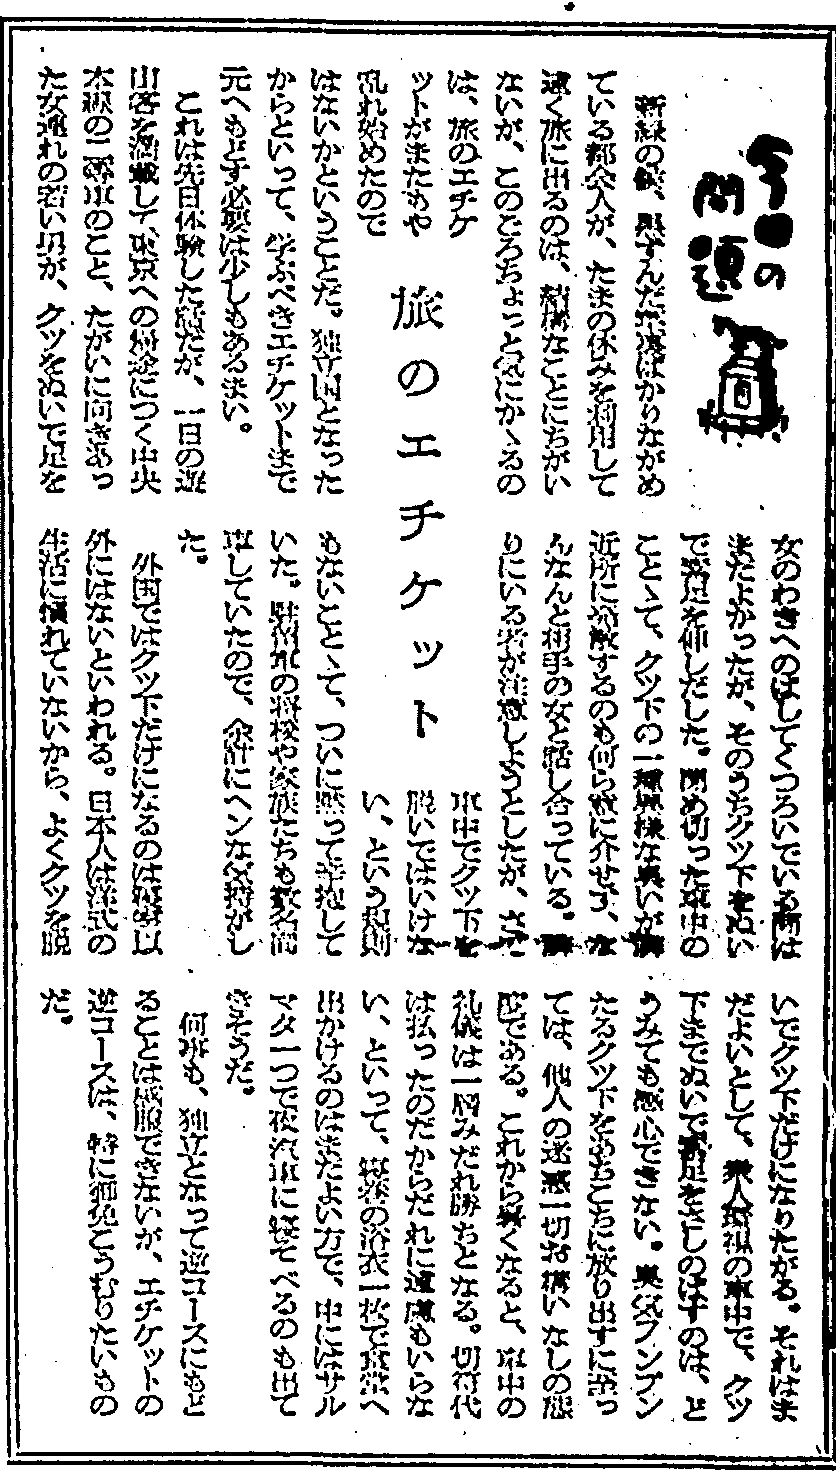 今日の
問題
旅のエチケット
新緑の候、黒ずんだ
ばかりながめ
ている都会人が、たまの休みを利用して
遠く旅に出るのは、結構なことにちがい
ないが、このごろちょっと気にかゝるの
は、旅のエチケ
ットがまたもや
乱れ始めたので
はないかということだ。独立国となった
からといって、学ぶべきエチケットまで
元へもどす必要は少しもあるまい。
これは先日体験した話だが、一日の遊
山客を満載して、東京への帰途につく中央
本線の二等車のこと、たがいに向きあっ
た女連れの若い男が、クツをぬいで足を
女のわきへのばしてくつろいでいる間は
まだよかったが、そのうちクツ下をぬい
で素足を伸しだした。閉め切った車中の
ことゝて、クツ下の一種異様な臭いが
近所に発散するのも何ら意に介せず、な
んなんと相手の女と話し合っている。隣
りにいる者が注意しようとしたが、さて
車中でクツ下を
脱いではいけな
い、という規則
もないことゝて、ついに黙って辛抱して
いた。駐留軍の将校や家族たちも数名同
車していたので、余計にヘンな気持がし
た。
外国ではクツ下だけになるのは寝室以
外にはないといわれる。日本人は洋式の
生活に慣れていないから、よくクツを脱
いでクツ下だけになりたがる。それはま
だよいとして、衆人環視の車中で、クツ
下までぬいで素足をさしのばすのは、ど
うみても感心できない。臭気フンプン
たるクツ下をあちこちに放り出すに至っ
ては、他人の迷惑一切お構いなしの態
度である。これから暑くなると、車中の
礼儀は一層みだれ勝ちとなる。切符代
は払ったのだからだれに遠慮もいらな
い、といって、寝巻の浴衣一枚で食堂へ
出かけるのはまだよい方で、中にはサル
マタ一つで夜汽車に寝そべるのも出て
きそうだ。
何事も、独立となって逆コースにもど
ることは感服できないが、エチケットの
逆コースは、特に御免こうむりたいもの
だ。